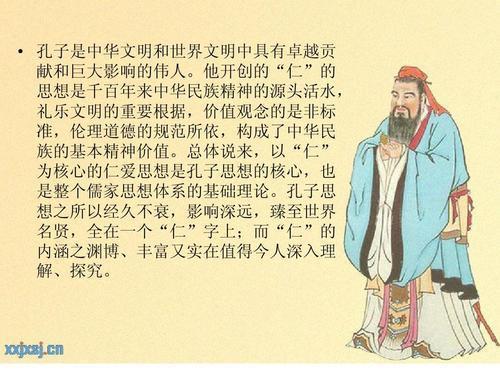 • 孔子是中华文明和世界文明中具有卓越贡
献和巨大影响的伟人。他开创的“仁”的
思想是千百年来中华民族精神的源头活水，
礼乐文明的重要根据，价值观念的是非标
准，伦理道德的规范所依，构成了中华民
族的基本精神价值。总体说来，以“仁”
为核心的仁爱思想是孔子思想的核心，也
是整个儒家思想体系的基础理论。孔子思
想之所以经久不衰，影响深远，臻至世界
名贤，全在一个“仁”字上；而“仁”的
内涵之渊博、丰富又实在值得今人深入理
解、探究。
xxjxsj.cn